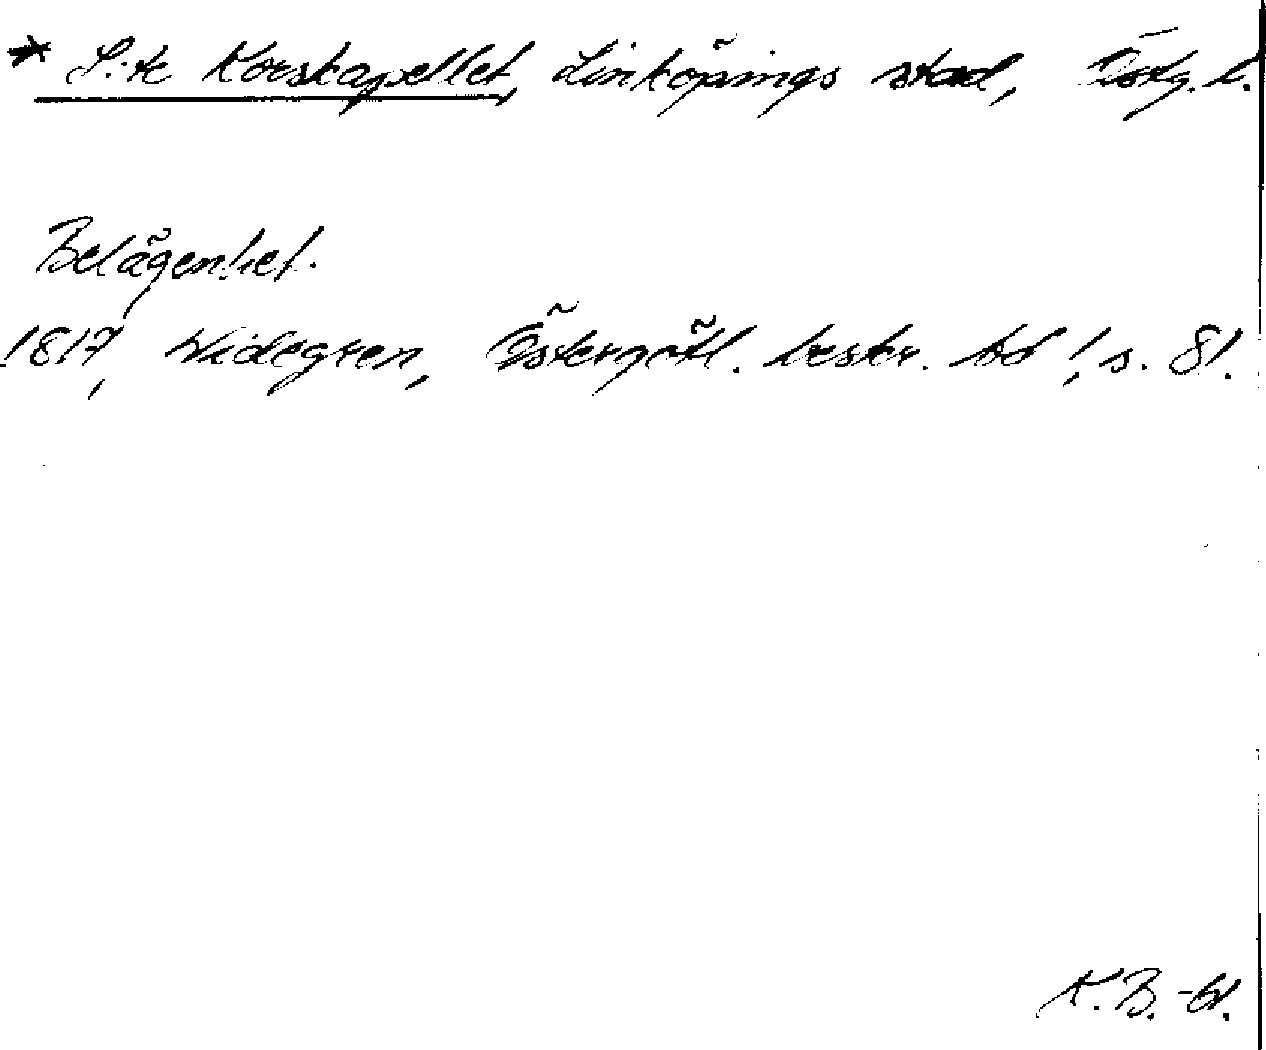 * S:te Korskapellet, Linköpings stad, Östg. l.
Belägenhet.
1817, Widegren, Östergötl. beskr. bd 1, s. 81.
K.B. -61.